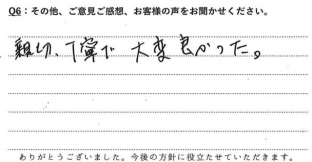 Q6：その他、ご意見ご感想、お客様の声をお聞かせください。
親切、丁寧で大変良かった。
ありがとうございました。今後の方針に役立たせていただきます。